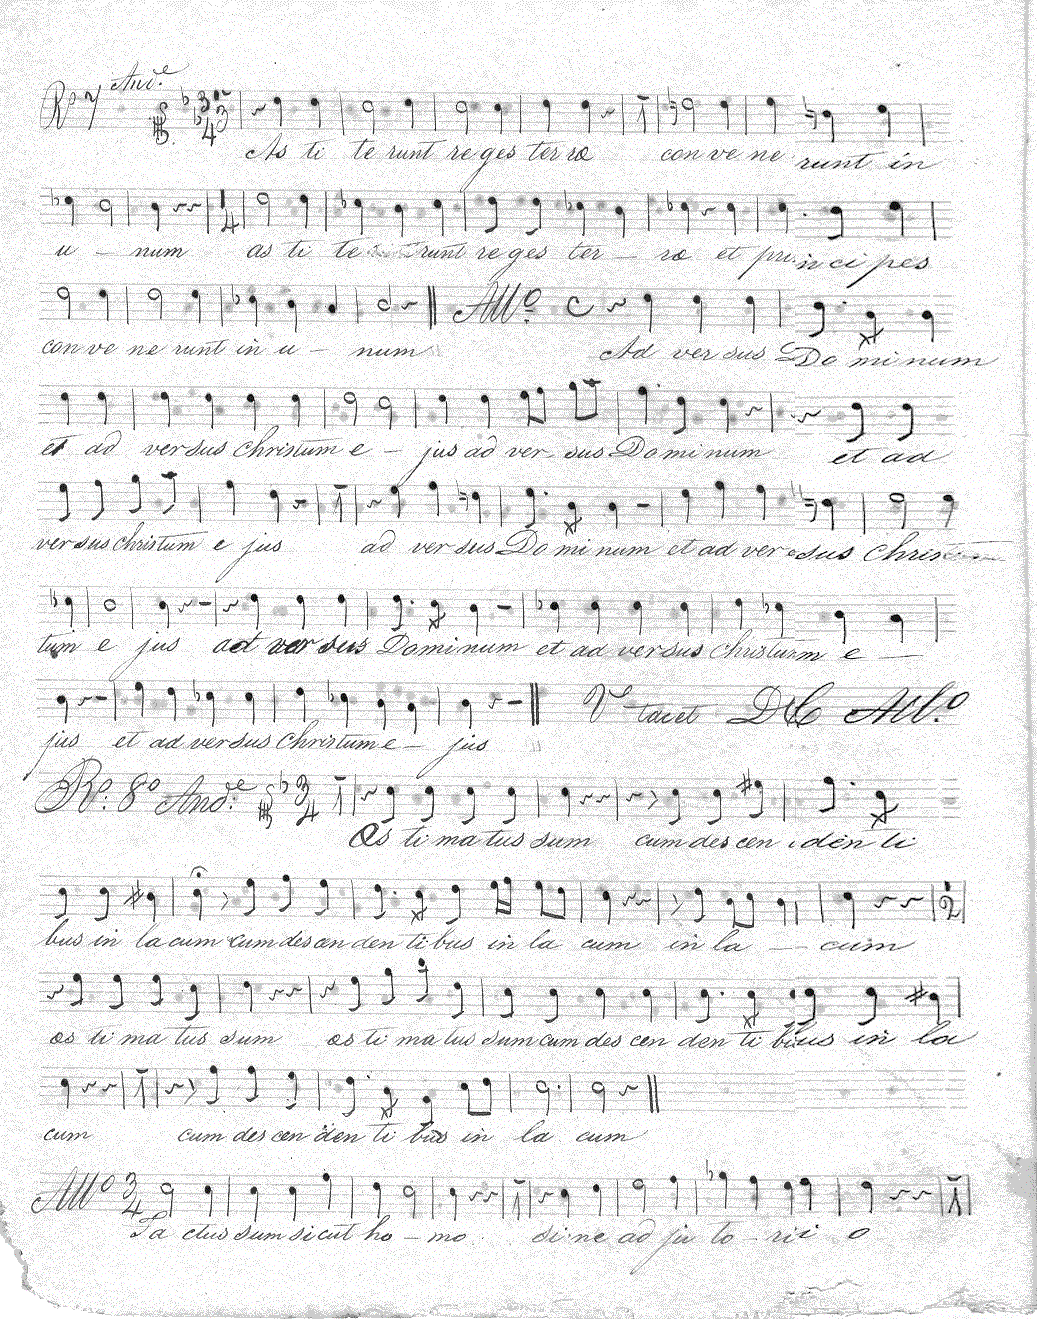 Ro 7 And.e
As ti te runt re ges ter ræ con ve ne runt in
u - num as ti te runt re ges ter - ræ et prin ci pes
con ve ne runt in u - num Allo. C Ad ver sus Do mi num
et ad ver sus christum e - jus ad ver sus Do mi num et ad
ver sus christum e jus ad ver sus Do mi num et ad ver sus Chris
tum e jus ad ver sus Do mi num et ad ver sus christum e -
jus et ad ver sus Christum e - jus V tacet DC Allo.
Ro. 8o And.e 3/4
Æs ti ma tus sum cum des cen den ti
bus in la cum cum des cen den ti bus in la cum in la - - cum
æs ti ma tus sum æs ti ma tus sum cum des cen den ti bus in la
cum cum des cen den ti bus in la cum
Allo 3/4
Fa ctus sum sicut ho - mo si ne ad ju to - ri i o